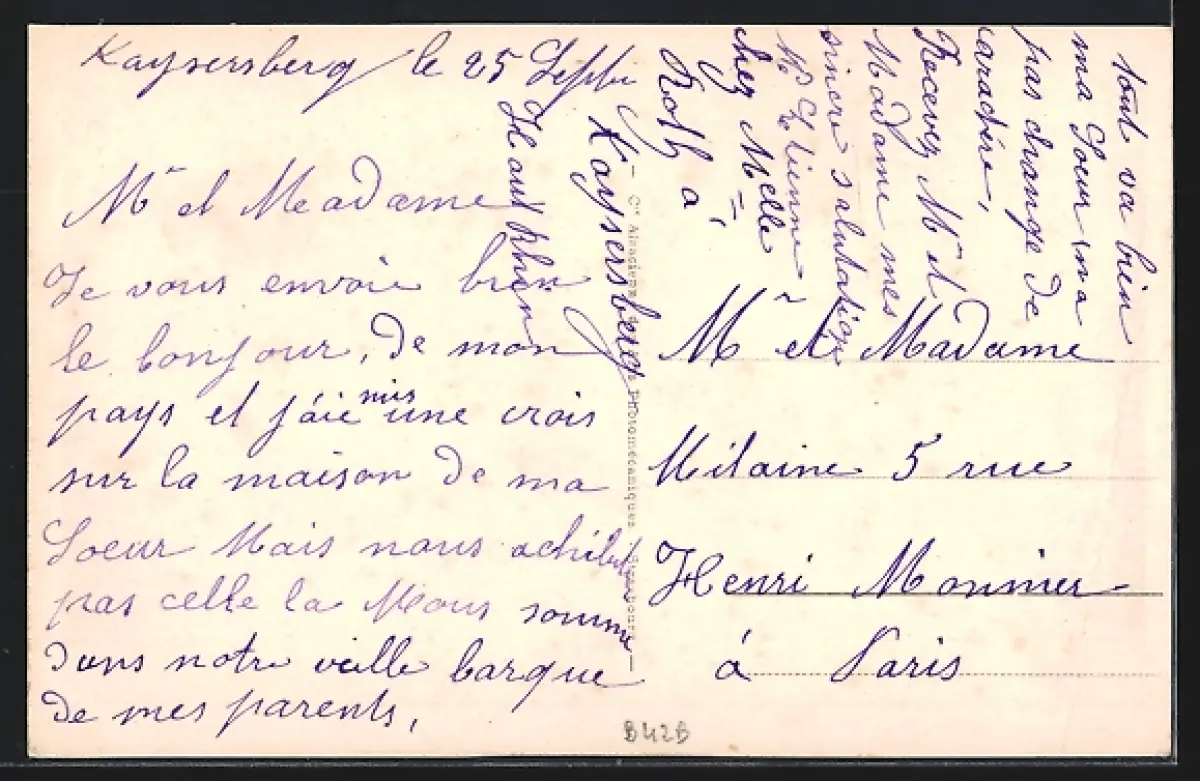 Kaysersberg le 25 Septbre
Mr et Meadame
Je vous envoie bien
le bonjour, de mon
pays et j'áie mis une crois
sur la maison de ma
Soeur Mais nous
pas celle la Nous somme
dans notre veille barque
de mes parents,
tout va bien
ma Soeur m'a
pas change de
caractère,
Recevez Mr et
Madame mes
sincere salutation
Etienne
chez Melle
Roth á
Kaysersberg
Haut Rhin
Cie Alsacienne Photomécaniques Strasbourg
Mr et Madame
Milaine 5 rue
Henri Monnier
á Paris
B42B